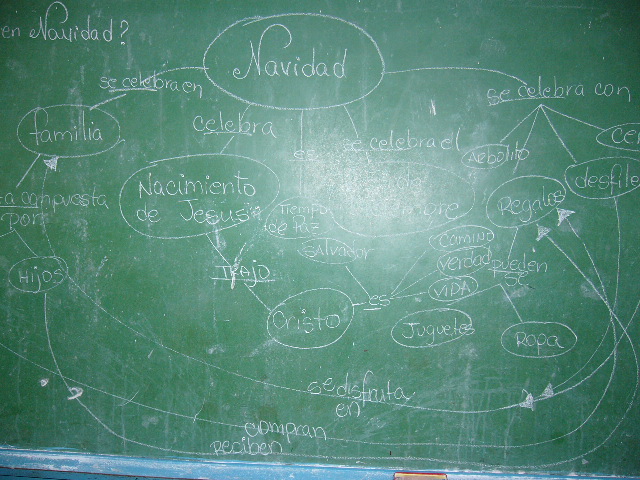 en Navidad?
Navidad
se celebra en
se celebra con
familia
celebra
es
se celebra el
Arbolito
desfile
Nacimiento
de Jesus
Regalos
compuesta
por
Tiempo
de
Salvador
Camino
verdad
pueden
Hijos
TRAJO
es
VIDA
Cristo
Juguetes
Ropa
se disfruta
en
compran
reciben